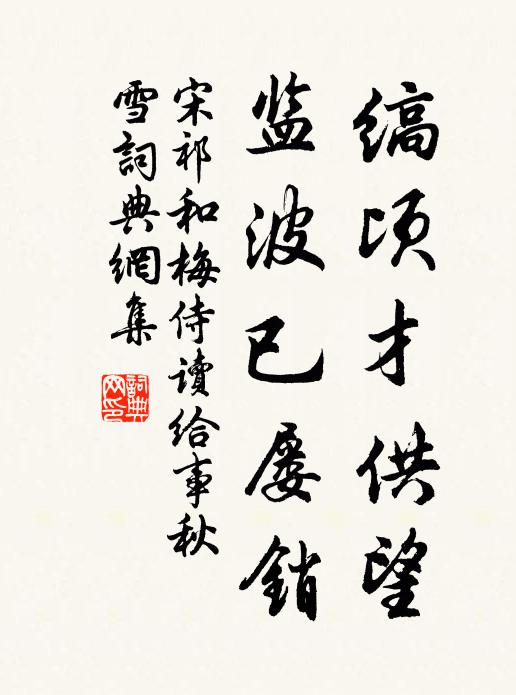 缟顷才供望
监波已屡销
宋祁和梅侍读给事秋
雪詞典網集
詞典
网印